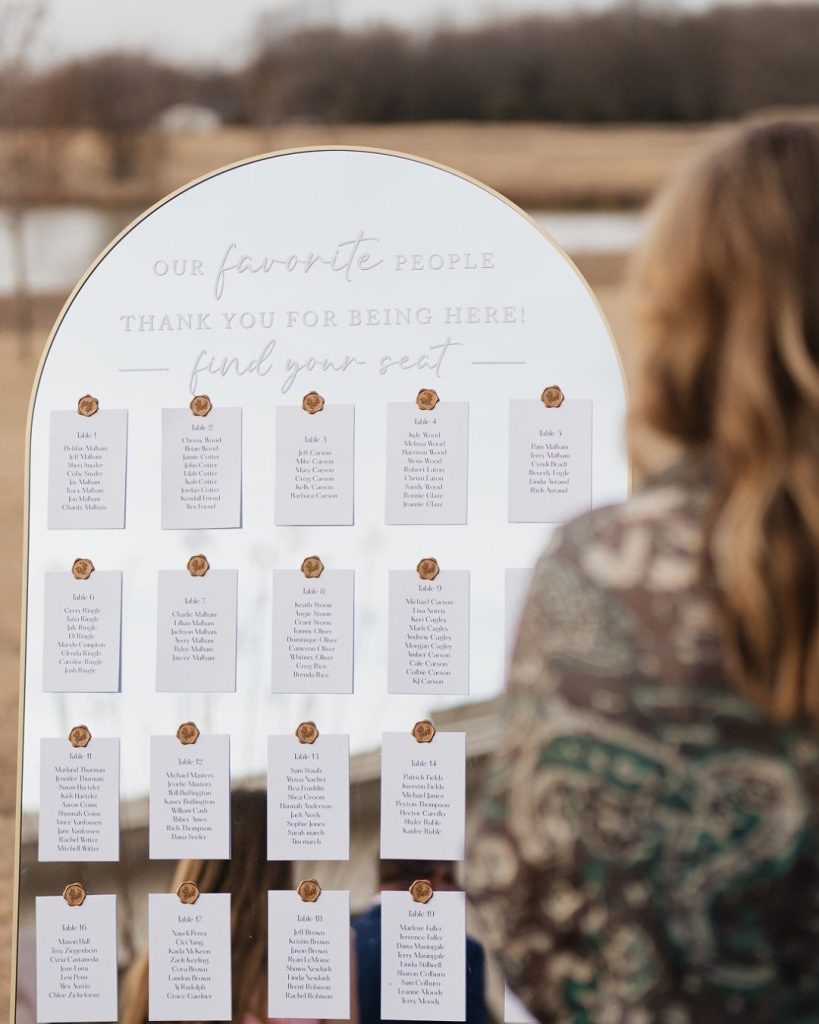 OUR favorite PEOPLE
THANK YOU FOR BEING HERE!
find your seat
Table 1
Debbie Malham
Jeff Malham
Sheri Snyder
Coby Snyder
Jay Malham
Tracy Malham
Jon Malham
Charity Malham
Table 2
Chrissy Wood
Brian Wood
Jaimie Cotter
John Cotter
Lilah Cotter
Asah Cotter
Jordan Cotter
Kendall Friend
Alex Friend
Table 3
Jeff Carson
Mike Carson
Mary Carson
Greg Carson
Kelly Carson
Barbara Carson
Table 4
Kyle Wood
Melissa Wood
Harrison Wood
Alexis Wood
Robert Eaton
Christi Eaton
Sandy Wood
Ronnie Glaze
Jeannie Glaze
Table 5
Pam Malham
Terry Malham
Cyndi Bradt
Beverly Engle
Linda Aurand
Rick Aurand
Table 6
Gerry Ringle
Tatia Ringle
July Ringle
Eli Ringle
Maryln Compton
Glenda Ringle
Caroline Ringle
Josh Ringle
Table 7
Charlie Malham
Lillian Malham
Jackson Malham
Avery Malham
Rylee Malham
Malham
Table 8
Keath Storm
Angie Storm
Grant Storm
Tommy Oliver
Dominique Oliver
Cameron Oliver
Whitney Oliver
Greg Rice
Brenda Rice
Table 9
Michael Carson
Lisa Norris
Keri Cagley
Mark Cagley
Andrew Cagley
Morgan Cagley
Amber Carson
Cale Carson
Colbie Carson
KJ Carson
Table 11
Marland Thurman
Jennifer Thurman
Susan Hartzler
Kirk Hartzler
Aaron Goins
Shannah Goins
Vince Vanfossen
Jane Vanfossen
Rachel Witter
Mitchell Witter
Table 12
Michael Masters
Jeorlie Masters
Will Buffington
Kasey Buffington
William Cash
Abbey Ames
Rich Thompson
Dana Seeler
Table 13
Sam Staub
Alyssa Nacher
Bea Franklin
Shea Groom
Hannah Anderson
Jack Neely
Sophie Jones
Sarah march
Tim march
Table 14
Patrick Fields
Kierstin Fields
Michael James
Peyton Thompson
Hector Carrillo
Skyler Ruble
Kaylee Ruble
Table 16
Mason Hull
Trey Ziegenbein
Cyria Castaneda
Jose Luna
Lexi Penix
Alex Austin
Chloe Zickefoose
Table 17
Nayeli Perez
Cici Yang
Kayla McKevin
Zack Keeling
Cora Brown
Landon Brown
Aj Rudolph
Grace Gardner
Table 18
Jeff Brown
Kristin Brown
Jaxon Brown
Ryan LeMoine
Shawn Newkirk
Linda Newkirk
Brent Robinson
Rachel Robinson
Table 19
Marlene Fuller
Terrence Fuller
Dana Masingale
Terry Masingale
Linda Stillwell
Sharon Colburn
Sam Colburn
Leanne Moody
Terry Moody